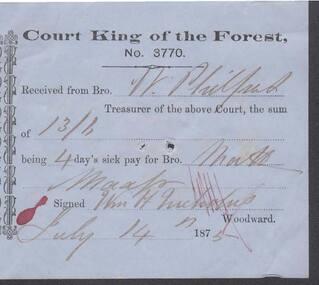 Court King of the Forest,
No. 3770.
Received from Bro. W. Philpot
Treasurer of the above Court, the sum
of 13/2
being 4 day's sick pay for Bro.
Signed Wm H Nicholas
Woodward.
July 14th 1875